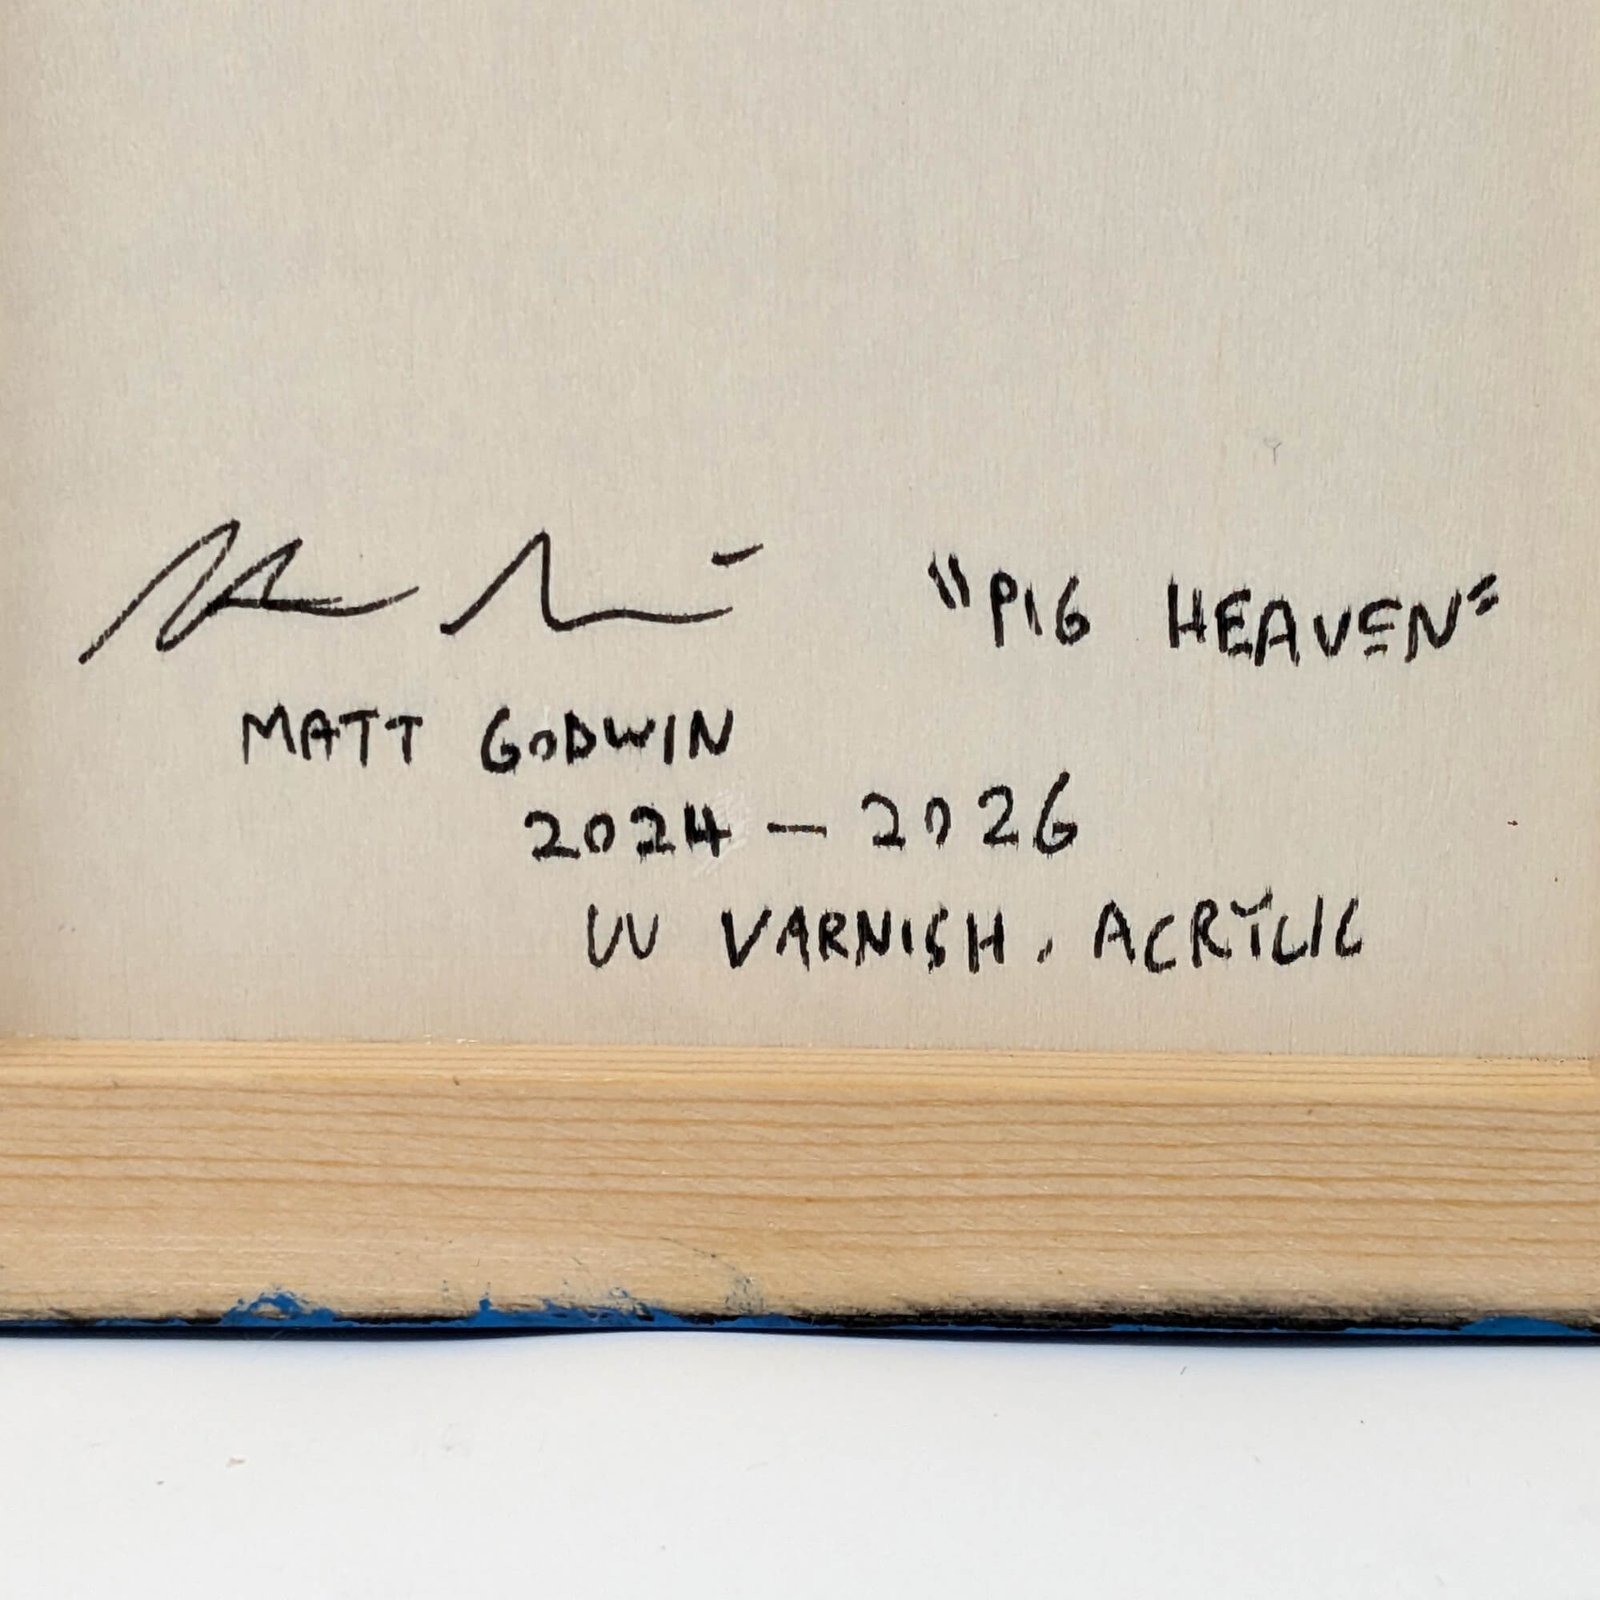 "PIG HEAVEN"
MATT GODWIN
2024 — 2026
UV VARNISH, ACRYLIC